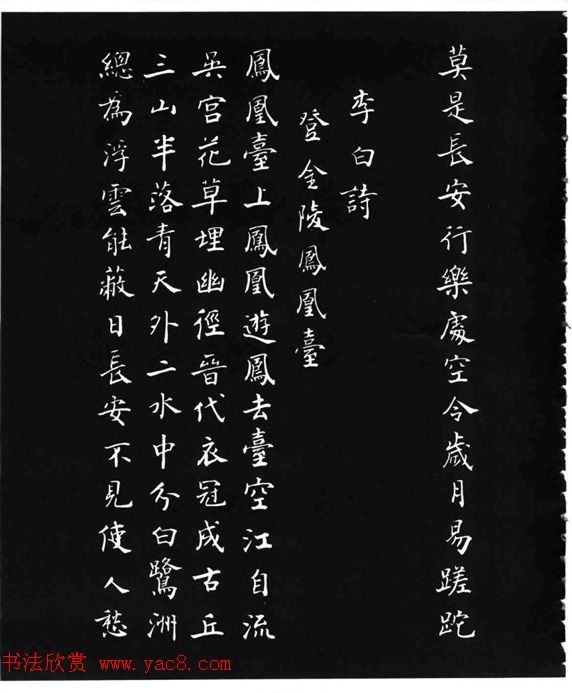 莫是長安行樂處空令歲月易蹉跎
李白詩
登金陵鳳凰臺
鳳凰臺上鳳凰遊鳳去臺空江自流
吳宮花草埋幽徑晉代衣冠成古丘
三山半落青天外二水中分白鷺洲
總為浮雲能蔽日長安不見使人愁
书法欣赏 www.yac8.com